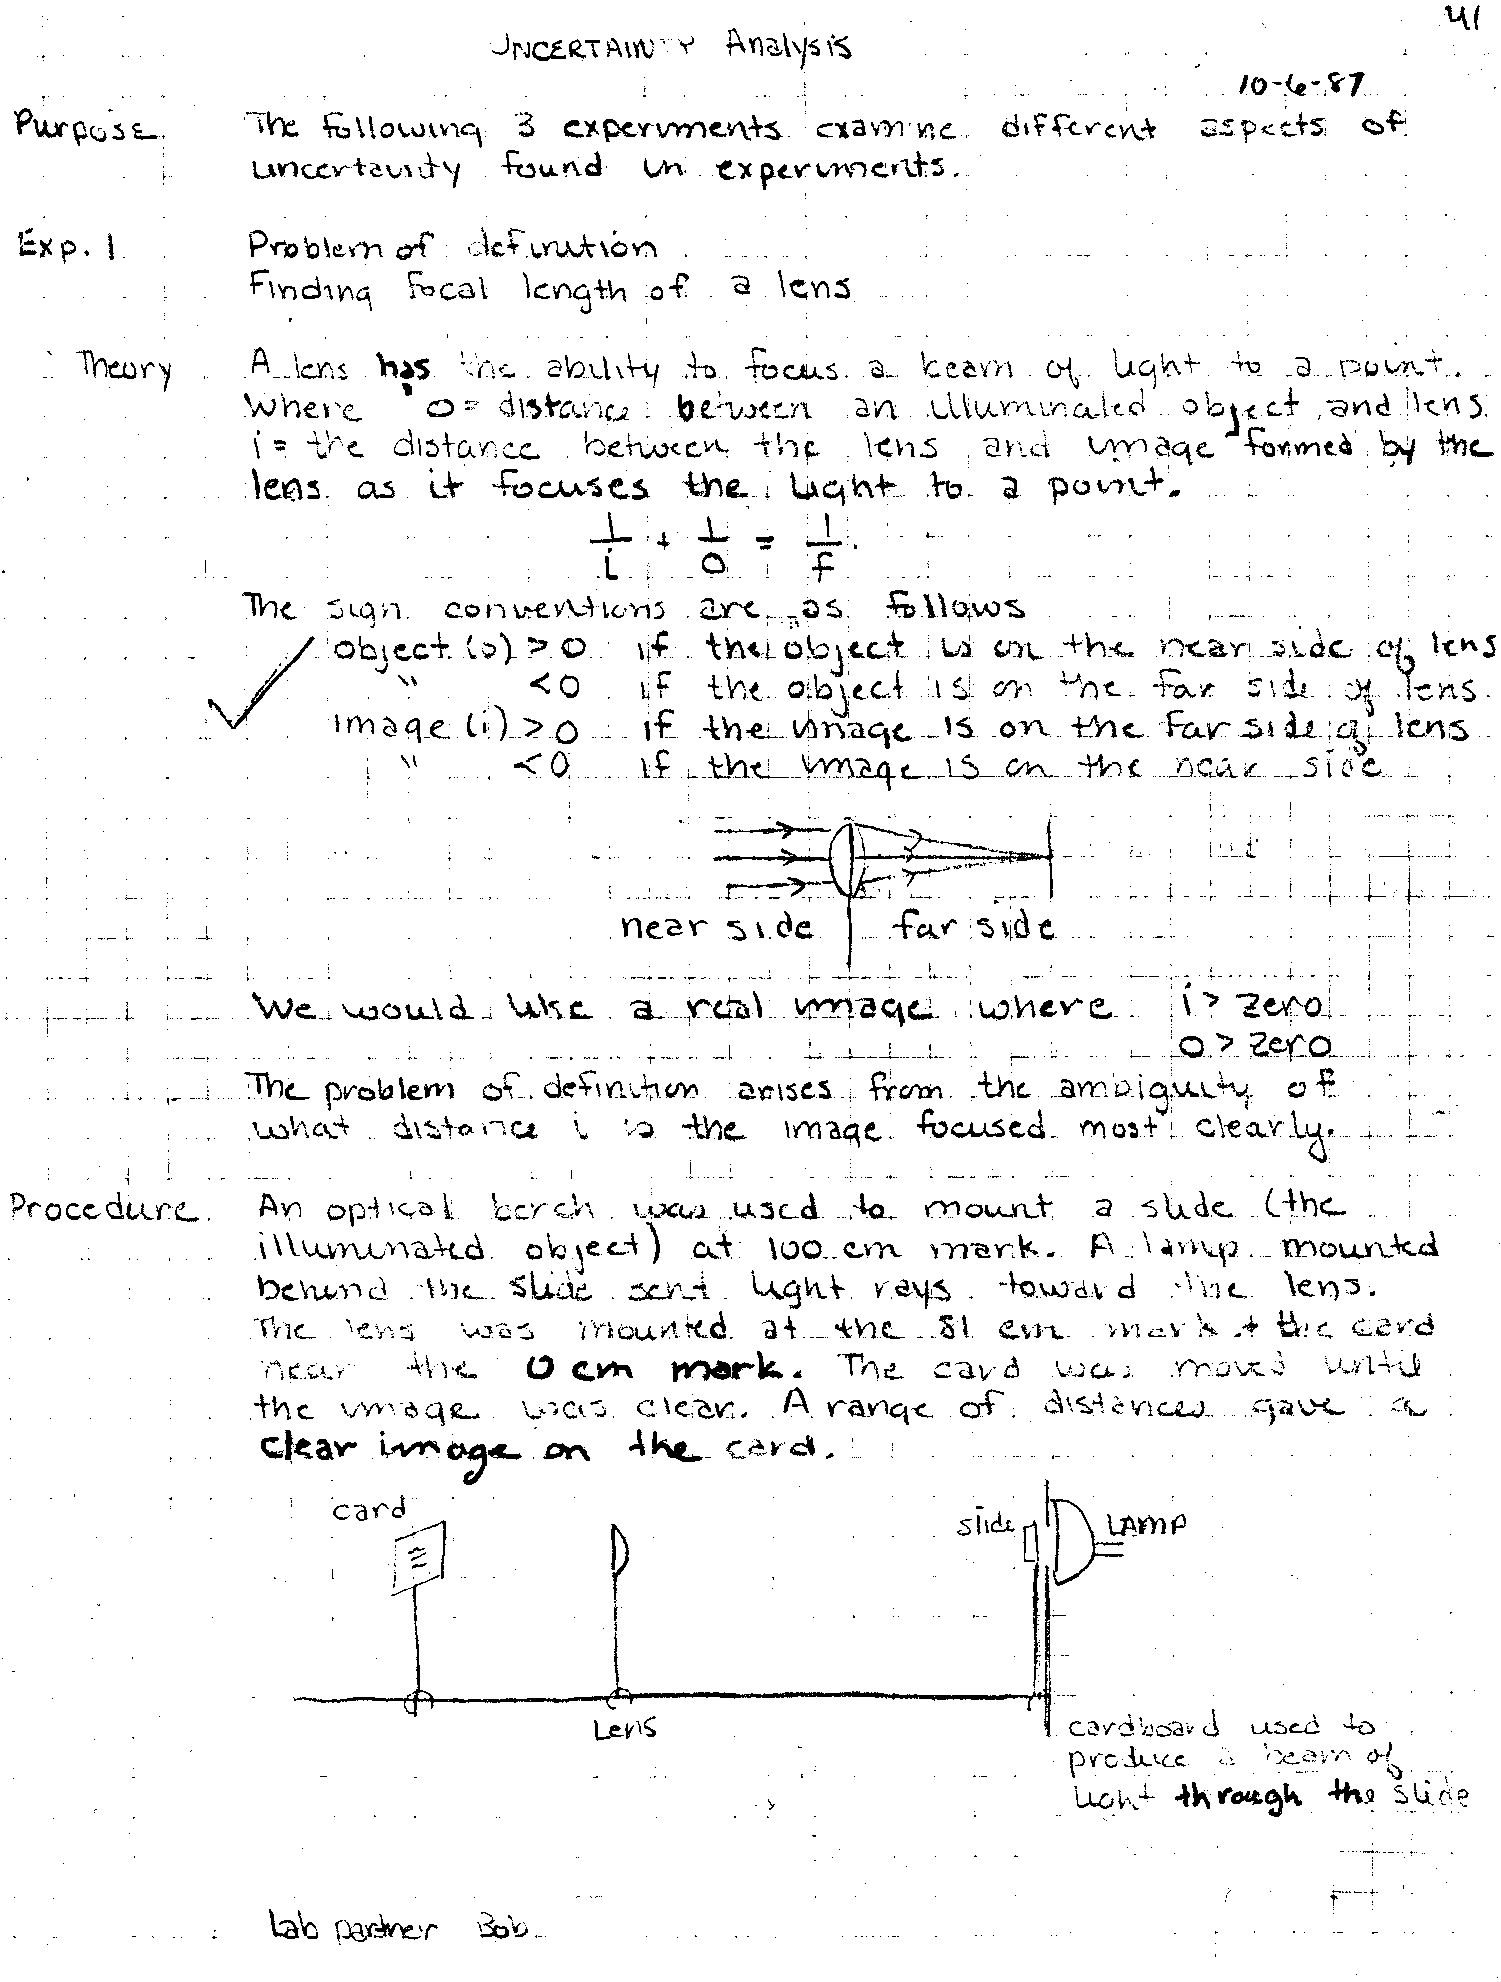 41
UNCERTAINTY Analysis
10-6-87
Purpose The following 3 experiments examine different aspects of
uncertainty found in experiments.
Exp. 1 Problem of definition
Finding focal length of a lens
Theory A lens has the ability to focus a beam of light to a point.
Where o = distance between an illuminated object and lens
i = the distance between the lens and image formed by the
lens as it focuses the light to a point.
1/i + 1/o = 1/f
The sign conventions are as follows
✓ object (o) > 0 if the object is on the near side of lens
" < 0 if the object is on the far side of lens.
image (i) > 0 if the image is on the far side of lens
" < 0 if the image is on the near side
near side far side
We would like a real image where i > zero
o > zero
The problem of definition arises from the ambiguity of
what distance i is the image focused most clearly.
Procedure An optical bench was used to mount a slide (the
illuminated object) at 100 cm mark. A lamp mounted
behind the slide sent light rays toward the lens.
The lens was mounted at the 81 cm mark + the card
near the 0 cm mark. The card was moved until
the image was clear. A range of distances gave a
clear image on the card.
card
slide LAMP
Lens
cardboard used to
produce a beam of
light through the slide
Lab partner Bob